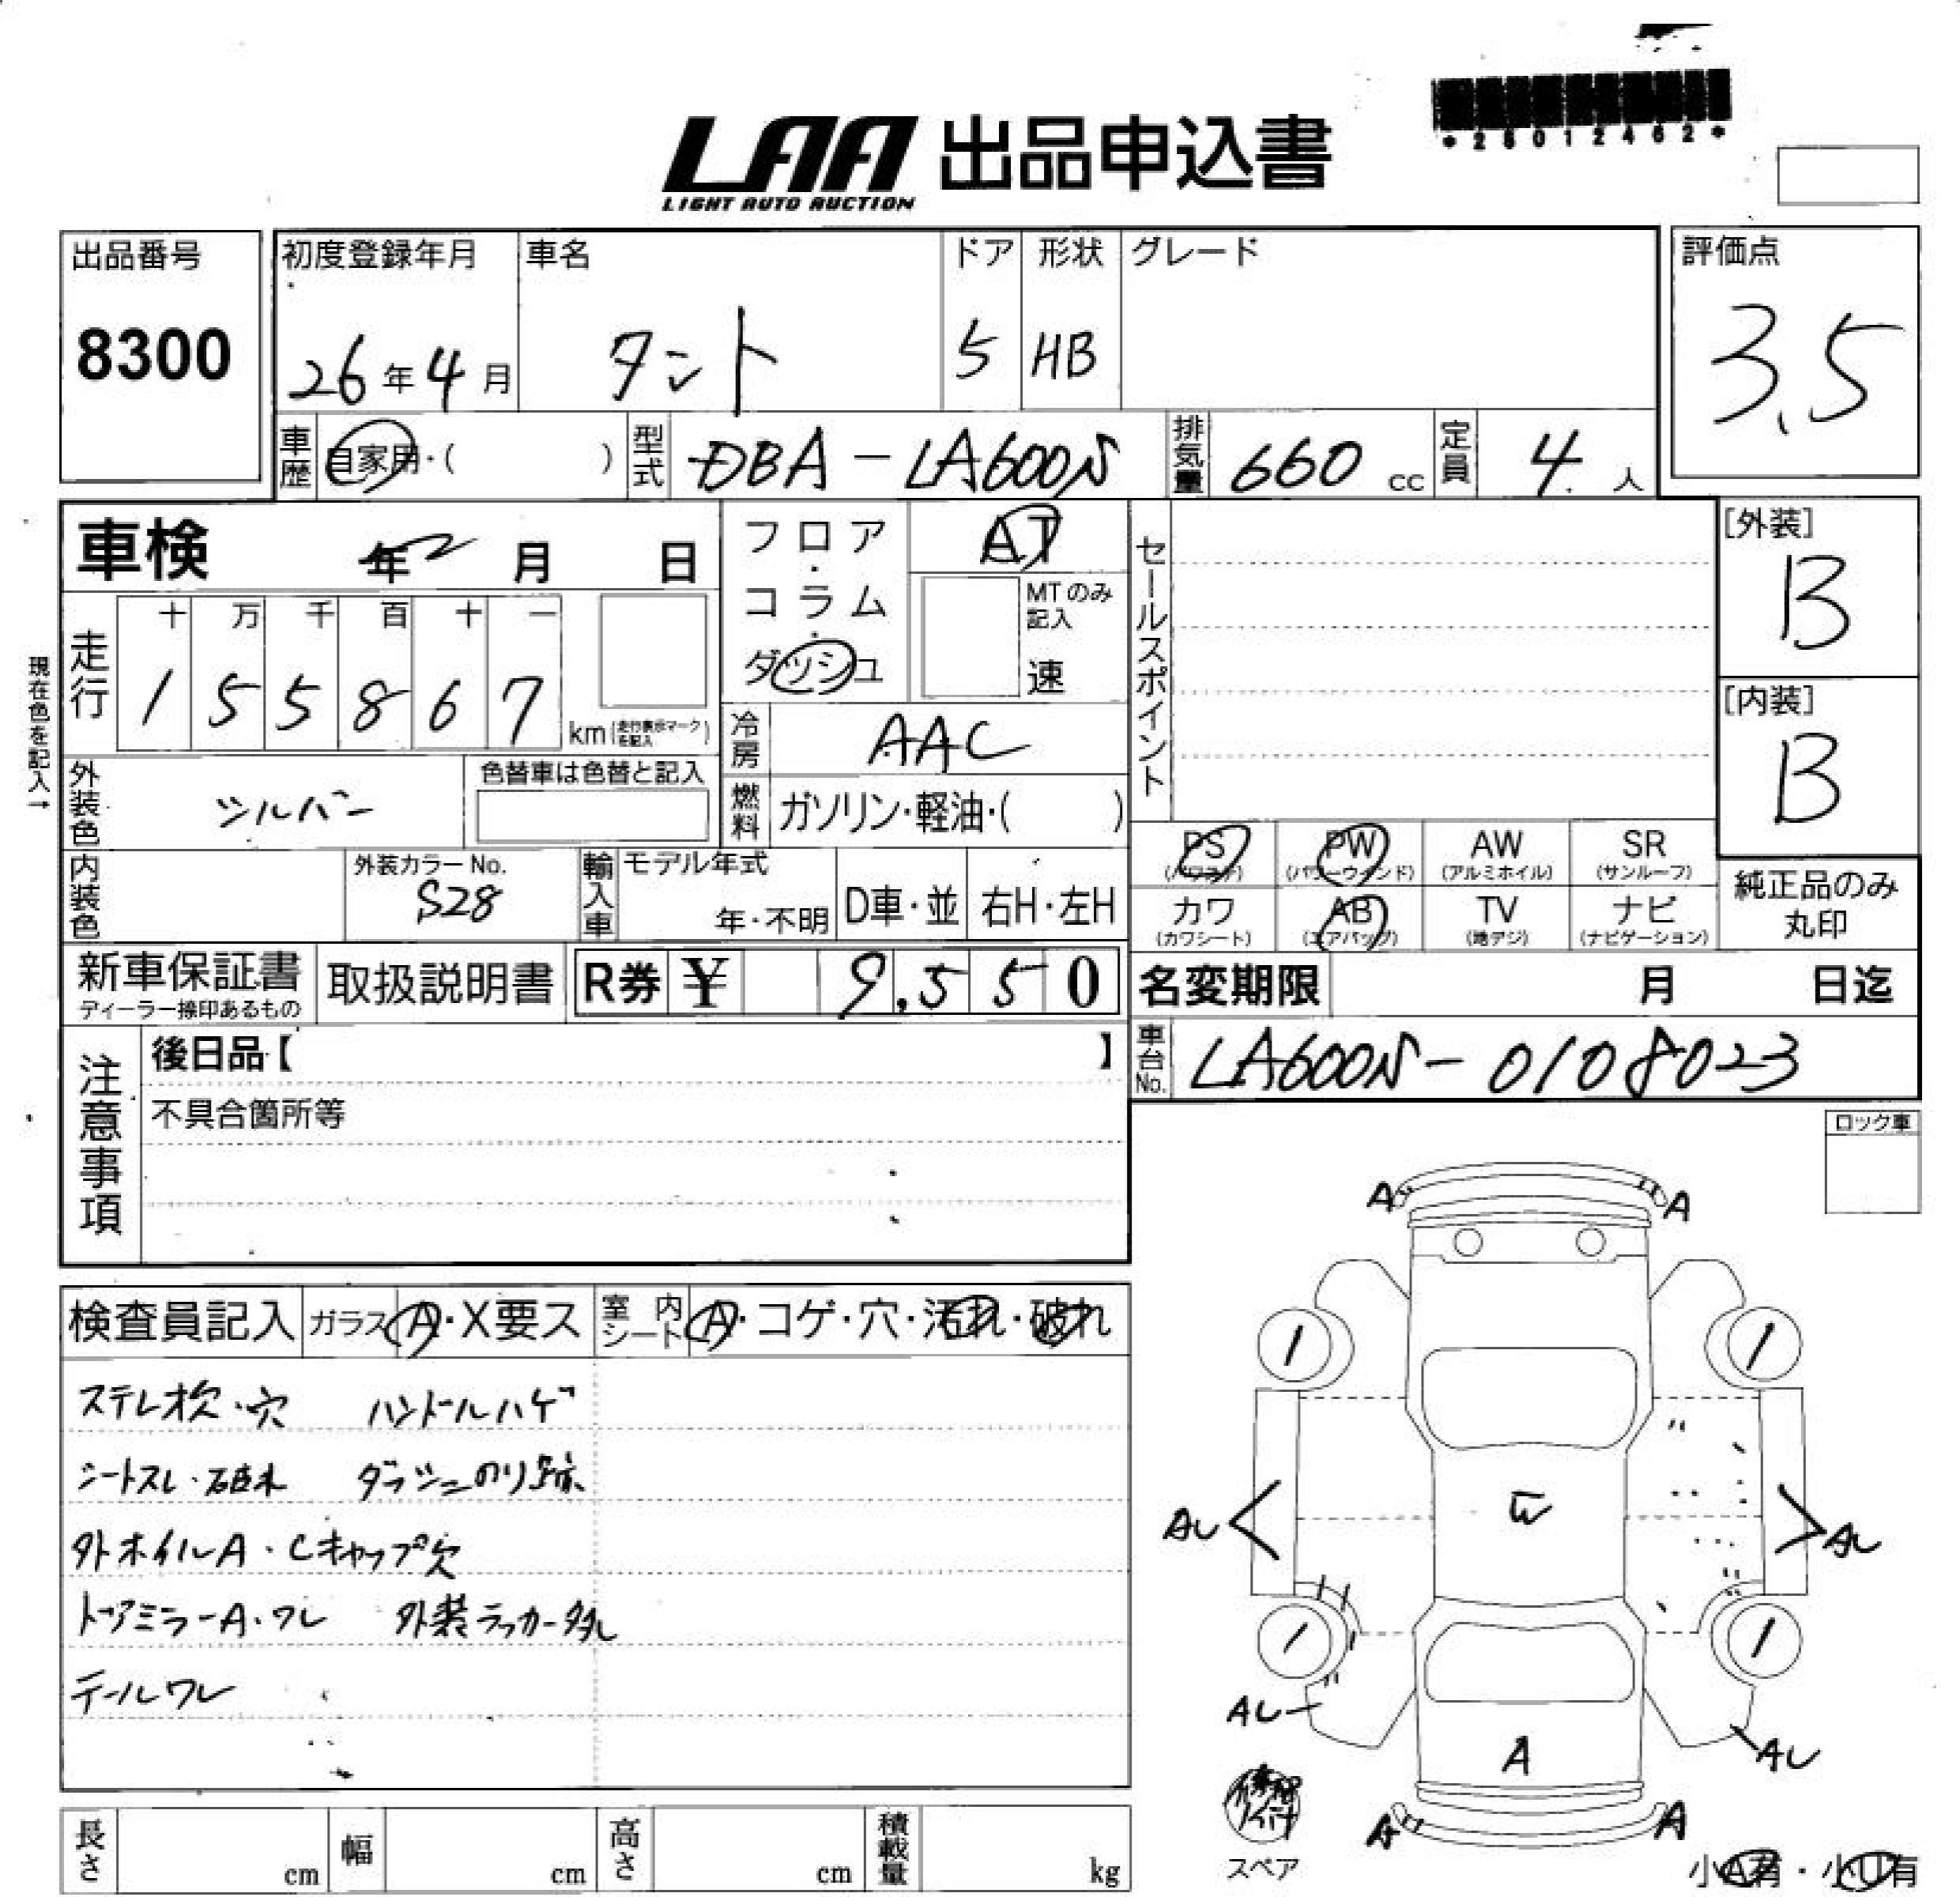 *28012462*
LAA 出品申込書
LIGHT AUTO AUCTION
出品番号 初度登録年月 車名 ドア 形状 グレード 評価点
8300 26年4月 タント 5 HB 3.5
車歴 自家用・( ) 型式 DBA-LA600S 排気量 660 cc 定員 4 人
車検 年 月 日 フロア・コラム・ダッシュ AT セールスポイント [外装]
MTのみ記入 速 B
現在色を記入→
走行 十 万 千 百 十 一
1 5 5 8 6 7 km (走行表示マークを記入) [内装]
冷房 AAC B
外装色 シルバー 色替車は色替と記入 燃料 ガソリン・軽油・( )
PS PW AW SR
(パワステ) (パワーウインド) (アルミホイル) (サンルーフ)
内装色 外装カラーNo. 輸入車 モデル年式 純正品のみ
S28 年・不明 D車・並 右H・左H カワ AB TV ナビ 丸印
(カワシート) (エアバッグ) (地デジ) (ナビゲーション)
新車保証書 取扱説明書 R券 ¥ 9,550 名変期限 月 日迄
ディーラー捺印あるもの
注意事項 後日品【 】 車台No. LA600S-0108023
不具合箇所等 ロック車
A A
検査員記入 ガラス A・X要ス 室内シート A・コゲ・穴・汚れ・破れ
ステレオ欠・穴 ハンドルハゲ
シートスレ・破れ ダッシュのり跡
外ホイルA・Cキャップ欠
ドアミラーA・ワレ 外装ラッカー多し
テールワレ
AU AU
AU A AU
A A
スペア 小A有・小U有
長さ cm 幅 cm 高さ cm 積載量 kg